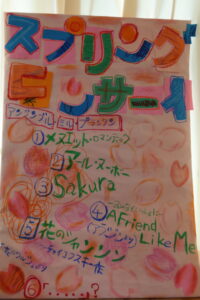 スプリング
コンサート
アンサンブル・ミル・プランタン
①メヌエット・ロマンティック
②アール・ヌーボー
③Sakura
④A Friend
Like Me
(アラジン)
⑤花のワルツ
チャイコフスキー作
⑥「......?